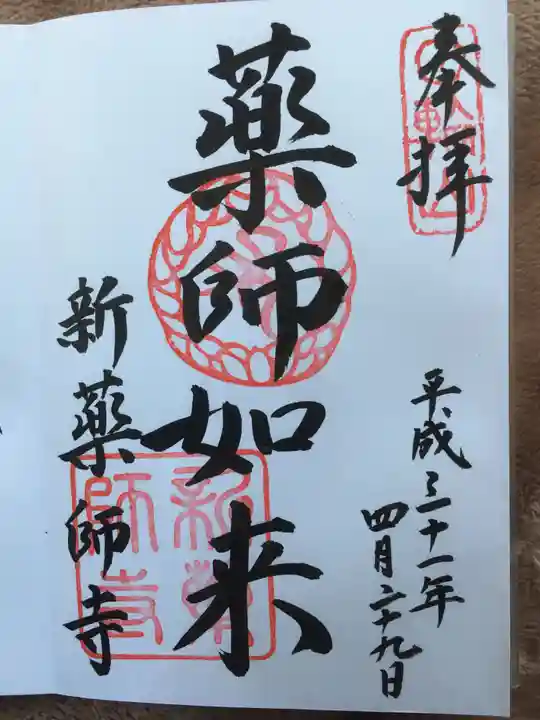 奉拝
平成三十一年
四月二十九日
薬師如来
新薬師寺
新薬
師寺